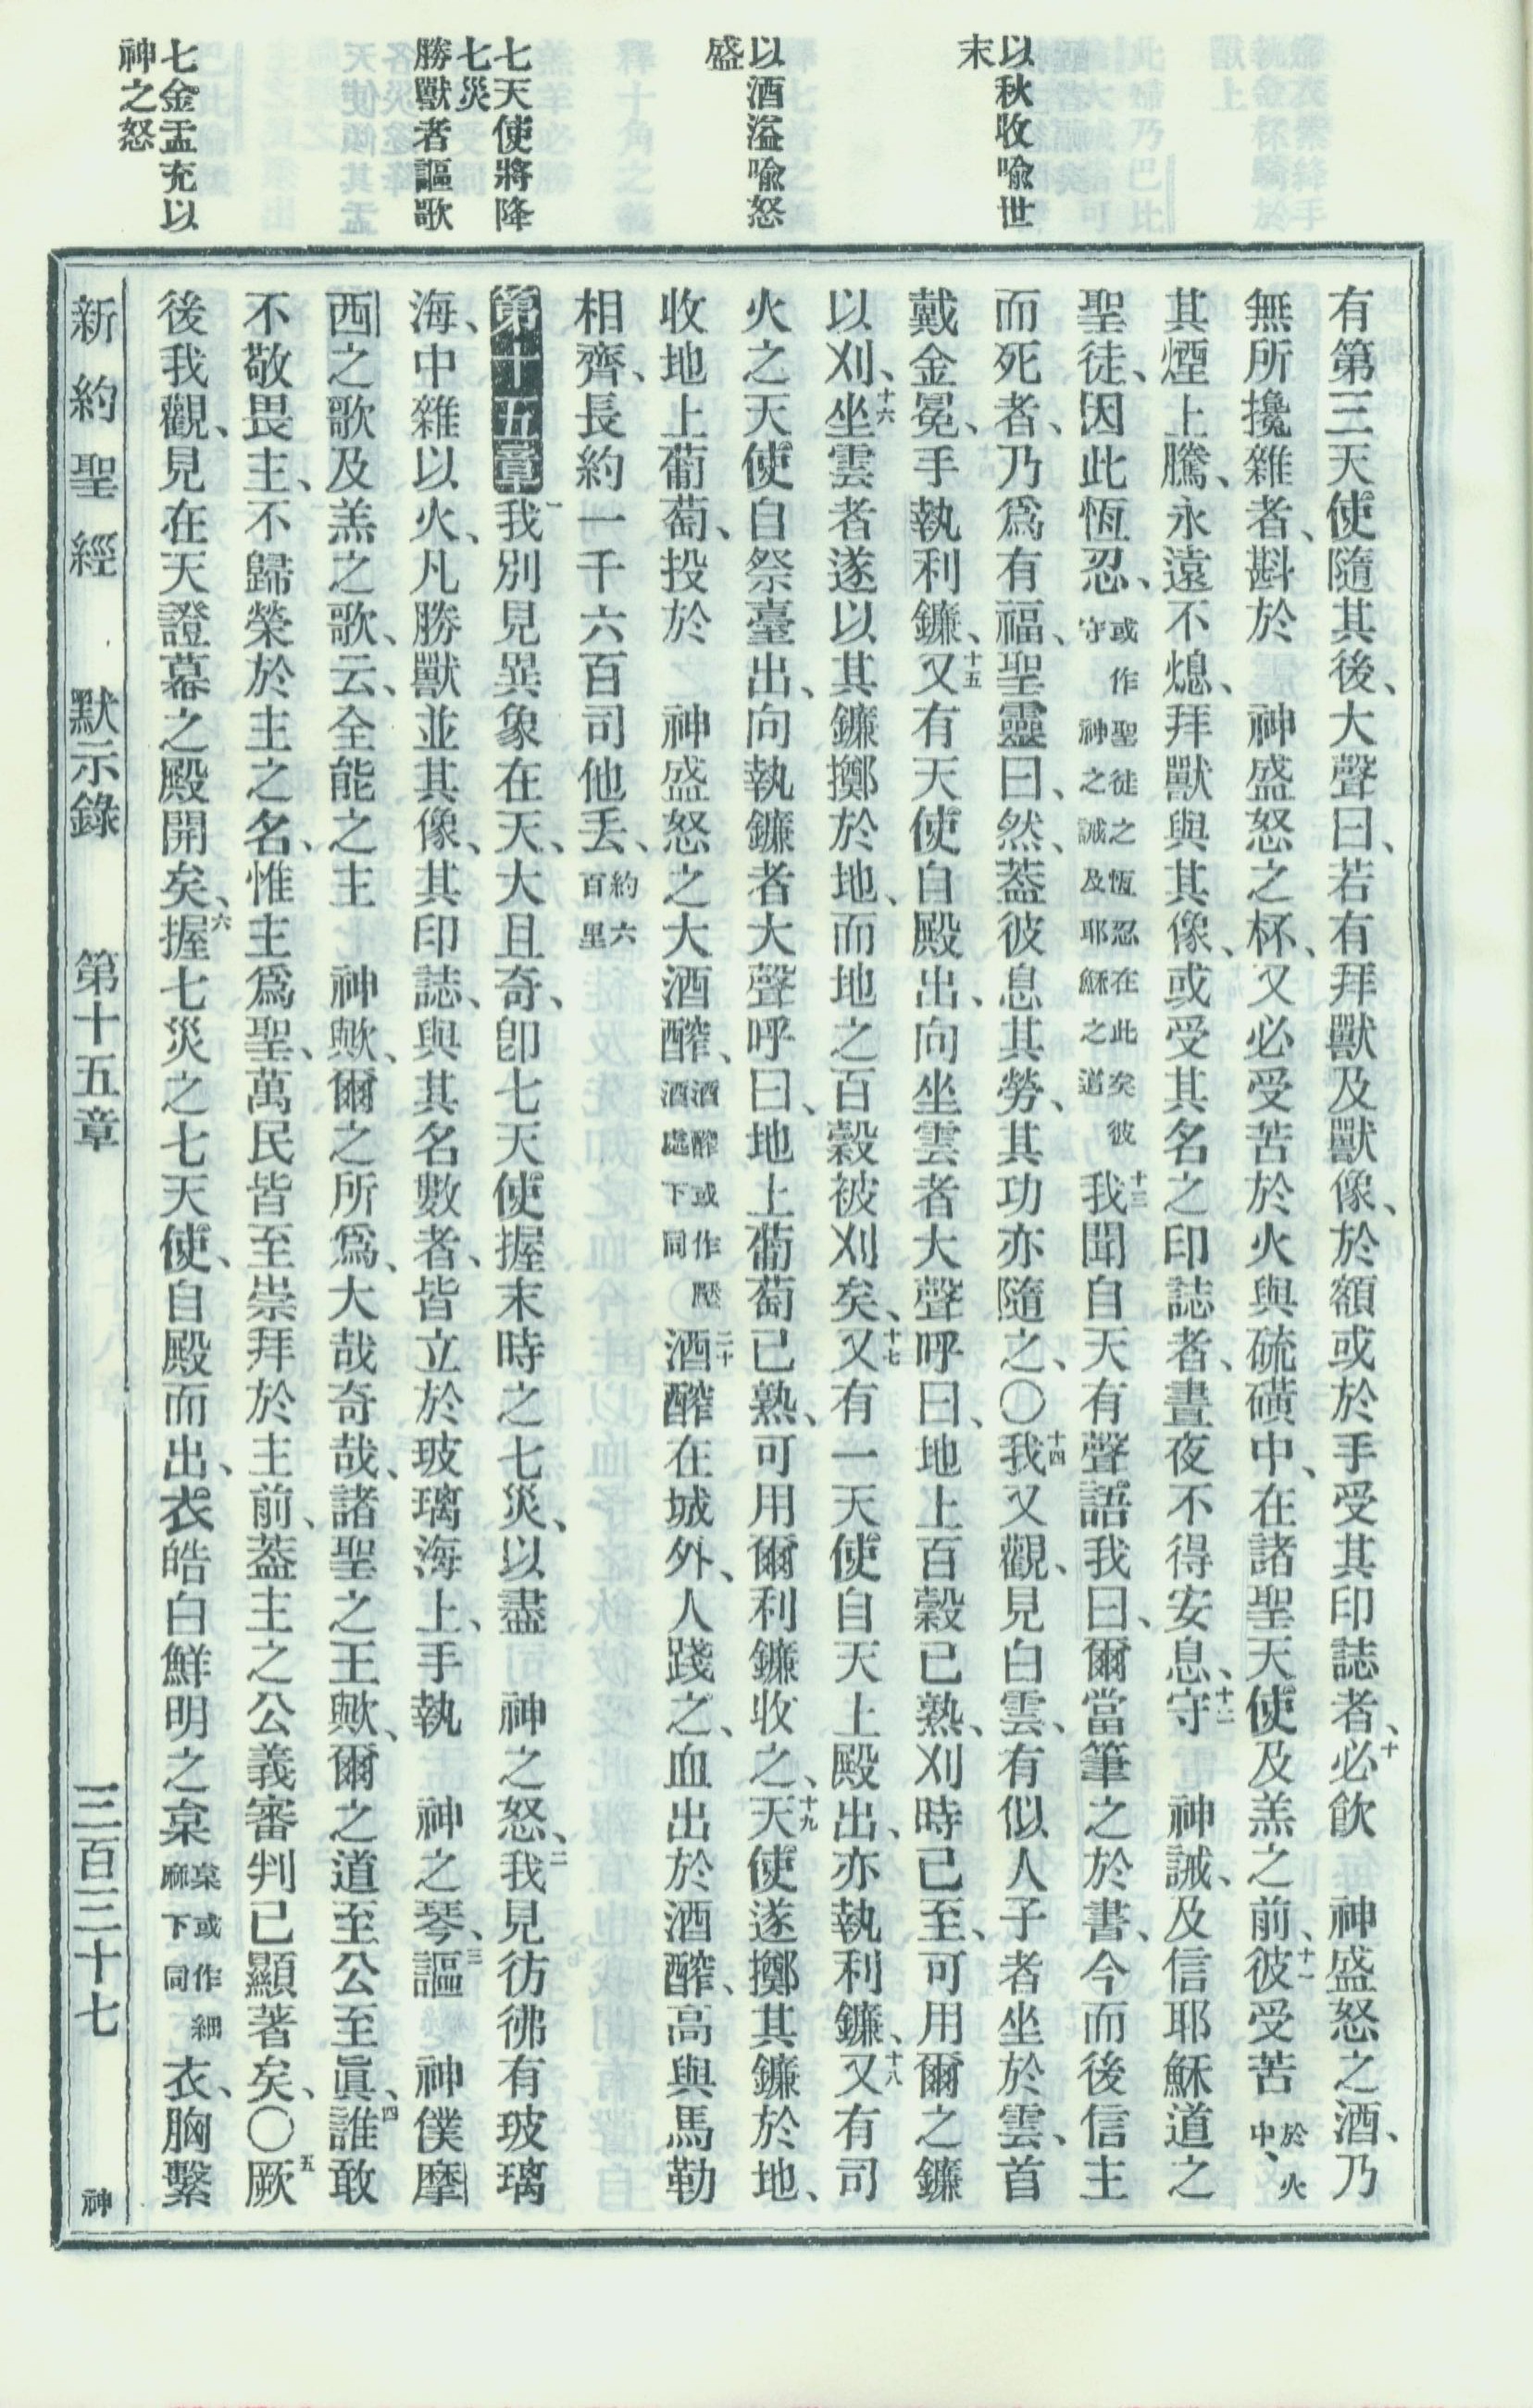 以秋收喩世
末
以酒溢喩怒
盛
七天使將降
七災
勝獸者謳歌
七金盂充以
神之怒
有第三天使隨其後、大聲曰、若有拜獸及獸像、於額或於手受其印誌者、十必飮 神盛怒之酒、乃
無所攙雜者、斟於 神盛怒之杯、又必受苦於火與硫磺中、在諸聖天使及羔之前、十一彼受苦於火中、
其煙上騰、永遠不熄、拜獸與其像、或受其名之印誌者、晝夜不得安息、十二守 神誡、及信耶穌道之
聖徒、因此恆忍、或作聖徒之恆忍在此矣彼守神之誡及耶穌之道 十三我聞自天有聲語我曰、爾當筆之於書、今而後信主
而死者、乃爲有福、聖靈曰、然、蓋彼息其勞、其功亦隨之、〇十四我又觀、見白雲、有似人子者坐於雲、首
戴金冕、手執利鐮、十五又有天使自殿出、向坐雲者大聲呼曰、地上百穀已熟、刈時已至、可用爾之鐮
以刈、十六坐雲者遂以其鐮擲於地、而地之百穀被刈矣、十七又有一天使自天上殿出、亦執利鐮、十八又有司
火之天使自祭臺出、向執鐮者大聲呼曰、地上葡萄已熟、可用爾利鐮收之、十九天使遂擲其鐮於地、
收地上葡萄、投於 神盛怒之大酒醡、酒醡或作壓酒處下同 二十酒醡在城外、人踐之、血出於酒醡、高與馬勒
相齊、長約一千六百司他丟、約六百里
第十五章一我別見異象在天、大且奇、卽七天使握末時之七災、以盡 神之怒、二我見彷彿有玻璃
海、中雜以火、凡勝獸並其像、其印誌、與其名數者、皆立於玻璃海上、手執 神之琴、三謳 神僕摩
西之歌及羔之歌、云、全能之主 神歟、爾之所爲、大哉奇哉、諸聖之王歟、爾之道至公至眞、四誰敢
不敬畏主、不歸榮於主之名、惟主爲聖、萬民皆至崇拜於主前、蓋主之公義審判已顯著矣、〇五厥
後我觀、見在天證幕之殿開矣、六握七災之七天使、自殿而出、衣皓白鮮明之枲枲或作細麻下同衣、胸繫
新約聖經 默示錄 第十五章 三百三十七 神